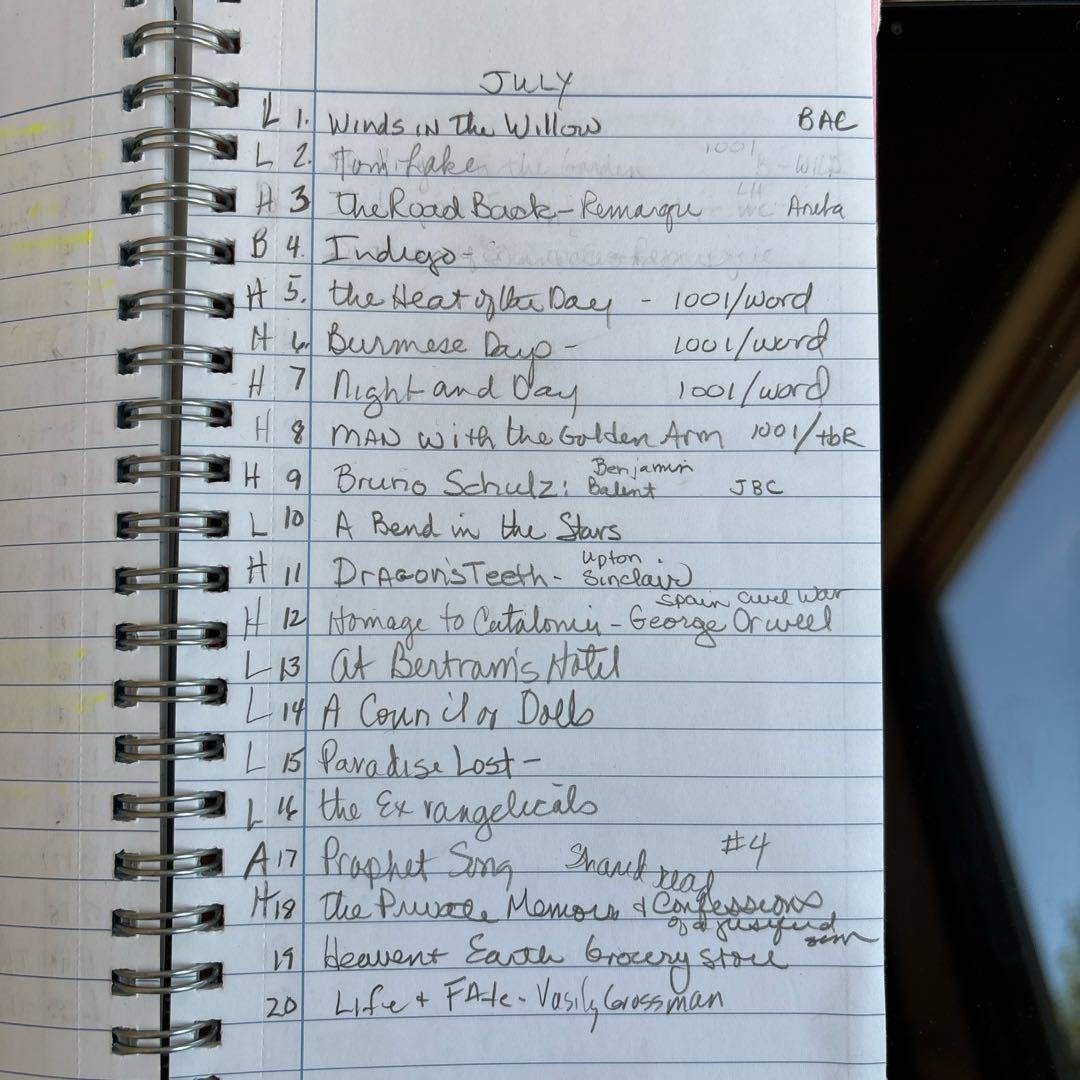 JULY
L 1. Winds in the Willow BAC
L 2. Tom Lake 1001
H 3 the Road Back - Remarque Aneta
B 4. Indiego -
H 5. the Heat of the Day - 1001/word
H 6. Burmese Days - 1001/word
H 7 Night and Day 1001/word
H 8 MAN with the Golden Arm 1001/tbR
H 9 Bruno Schulz: Benjamin Balent JBC
L 10 A Bend in the Stars
H 11 Dragon's Teeth - Upton Sinclair
spain civel war
H 12 Homage to Catalonia - George Orweel
L 13 at Bertram's Hotel
L 14 A Council of Dolls
L 15 Paradise Lost -
L 16 the Exvangelicals
A 17 Prophet Song Shared read #4
H 18 the Private Memoirs & Confessions
of a justified
19 Heaven + Earth Grocery Store
20 Life + FAte - Vasily Grossman